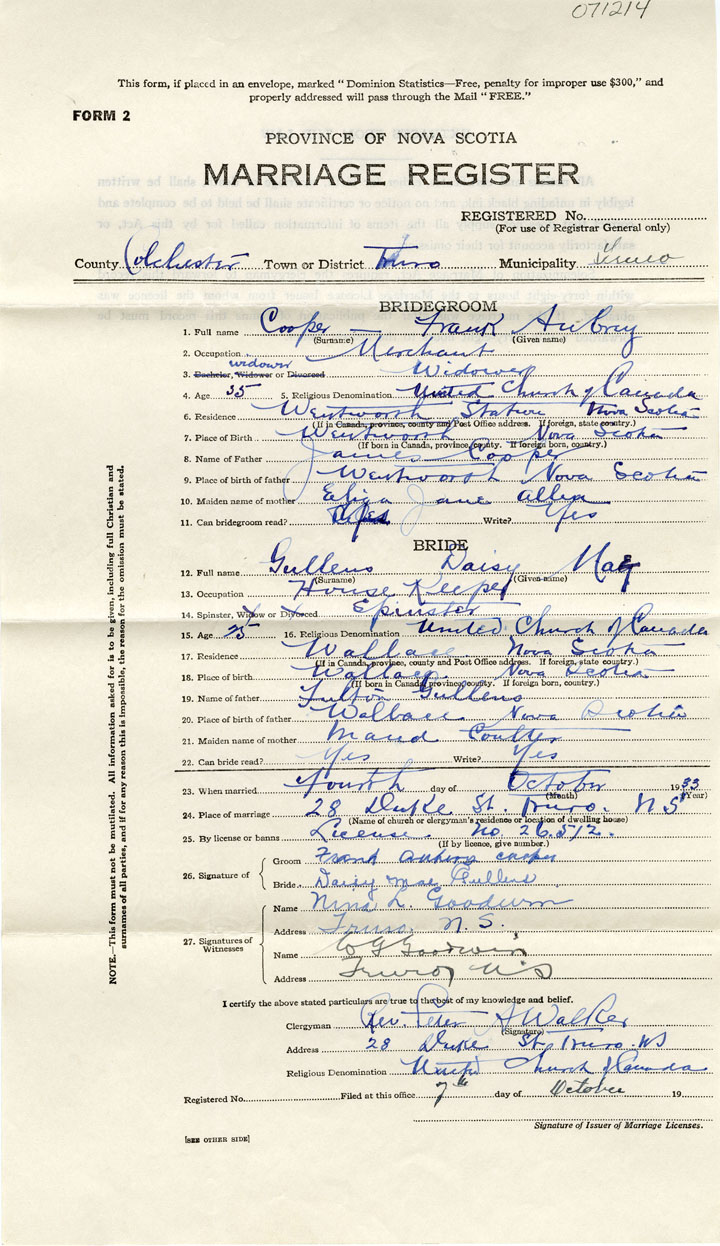 071214
This form, if placed in an envelope, marked "Dominion Statistics—Free, penalty for improper use $300," and
properly addressed will pass through the Mail "FREE."
FORM 2
PROVINCE OF NOVA SCOTIA
MARRIAGE REGISTER
REGISTERED No.
(For use of Registrar General only)
County Colchester Town or District Truro Municipality Truro
BRIDEGROOM
1. Full name Cooper — Frank Aubrey
(Surname) (Given name)
2. Occupation Merchant
widower
3. Bachelor, Widower or Divorced Widower
4. Age 35 5. Religious Denomination United Church of Canada
6. Residence Wentworth Station Nova Scotia
(If in Canada, province, county and Post Office address. If foreign, state country.)
7. Place of Birth Wentworth Nova Scotia
(If born in Canada, province, county. If foreign born, country.)
8. Name of Father James Cooper
9. Place of birth of father Wentworth Nova Scotia
10. Maiden name of mother Eliza Jane Allen
11. Can bridegroom read? Yes Write? Yes
BRIDE
12. Full name Gullens Daisy Mae
(Surname) (Given name)
13. Occupation House Keeper
14. Spinster, Widow or Divorced Spinster
15. Age 25 16. Religious Denomination United Church of Canada
17. Residence Wallace Nova Scotia
(If in Canada, province, county and Post Office address. If foreign, state country.)
18. Place of birth Wallace Nova Scotia
(If born in Canada, province, county. If foreign born, country.)
19. Name of father Fulton Gullens
20. Place of birth of father Wallace Nova Scotia
21. Maiden name of mother Maud Coulter
22. Can bride read? Yes Write? Yes
23. When married fourth day of October 1933
(Month) (Year)
24. Place of marriage 28 Duke St. Truro. N S
(Name of church or clergyman's residence or location of dwelling house)
25. By license or banns License. No. 26.512.
(If by licence, give number.)
26. Signature of
Groom Frank Aubrey Cooper
Bride Daisy Mae Gullens
27. Signatures of Witnesses
Name Nina L. Goodwin
Address Truro N.S.
Name Goodwin
Address Truro N S
I certify the above stated particulars are true to the best of my knowledge and belief.
Clergyman Rev. Peter A Walker
(Signature)
Address 28 Duke St. Truro. NS
Religious Denomination United Church of Canada
Registered No. Filed at this office 7th day of October 19
Signature of Issuer of Marriage Licenses.
[SEE OTHER SIDE]
NOTE.—This form must not be mutilated. All information asked for is to be given, including full Christian and
surnames of all parties, and if for any reason this is impossible, the reason for the omission must be stated.